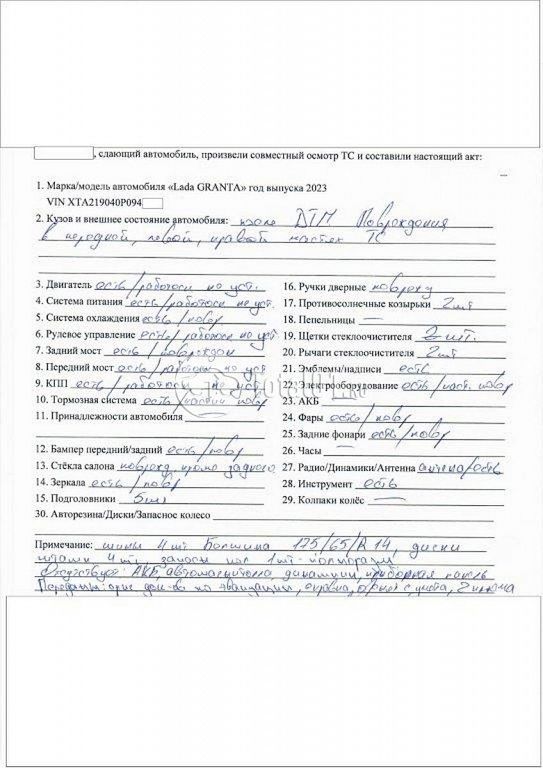 , сдающий автомобиль, произвели совместный осмотр ТС и составили настоящий акт:
1. Марка/модель автомобиля «Lada GRANTA» год выпуска 2023
VIN XTA219040P094
2. Кузов и внешнее состояние автомобиля: после ДТП Повреждения
в передной, левой, правой частях ТС
3. Двигатель есть/работосп не уст.
16. Ручки дверные поврежд
4. Система питания есть/работосп не уст.
17. Противосолнечные козырьки 2 шт
5. Система охлаждения есть/повр
18. Пепельницы —
6. Рулевое управление есть/работосп не уст
19. Щетки стеклоочистителя 2 шт.
7. Задний мост есть/поврежден
20. Рычаги стеклоочистителя 2 шт
8. Передний мост есть/работосп не уст
21. Эмблемы/надписи есть
9. КПП есть/работосп не уст
22. Электрооборудование есть/част. повр
10. Тормозная система есть/част повр
23. АКБ
11. Принадлежности автомобиля
24. Фары есть/повр
25. Задние фонари есть/повр
12. Бампер передний/задний есть/повр
26. Часы —
13. Стёкла салона поврежд кроме заднего
27. Радио/Динамики/Антенна антенна есть
14. Зеркала есть/повр
28. Инструмент есть
15. Подголовники 5 шт
29. Колпаки колёс —
30. Авторезина/Диски/Запасное колесо
Примечание: шины 4 шт 175/65/R14, диски
штамп 4 шт, 1 шт
Отсутствует: АКБ, автомагнитола динамики, приборная панель
на эвакуации, справка, с учета, 2 ключа